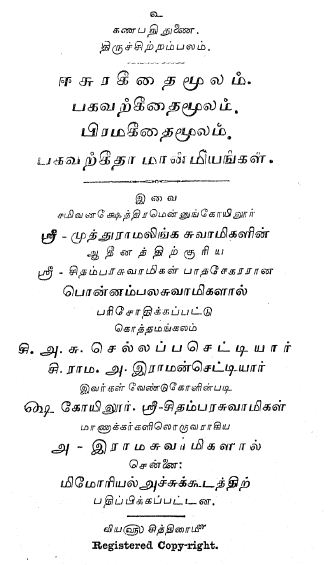 உ
கணபதிதுணை.
திருச்சிற்றம்பலம்.
ஈசுரகீதைமூலம்.
பகவற்கீதைமூலம்.
பிரமகீதைமூலம்.
பகவற்கீதா மான்மியங்கள்.
இவை
சமிவனக்ஷேத்திரமென்னுங்கோயிலூர்
ஸ்ரீ - முத்துராமலிங்க சுவாமிகளின்
ஆதீனத்திற்குரிய
ஸ்ரீ - சிதம்பரசுவாமிகள் பாதசேகரரான
பொன்னம்பலசுவாமிகளால்
பரிசோதிக்கப்பட்டு
கொத்தமங்கலம்
சி. அ. சு. செல்லப்பசெட்டியார்
சி. ராம. அ. இராமன்செட்டியார்
இவர்கள் வேண்டுகோளின்படி
௸ கோயிலூர். ஸ்ரீ-சிதம்பரசுவாமிகள்
மாணாக்கர்களிலொருவராகிய
அ - இராமசுவாமிகளால்
சென்னை:
மிமோரியல் அச்சுக்கூடத்திற்
பதிப்பிக்கப்பட்டன.
விய௵ சித்திரைமீ
Registered Copy-right.